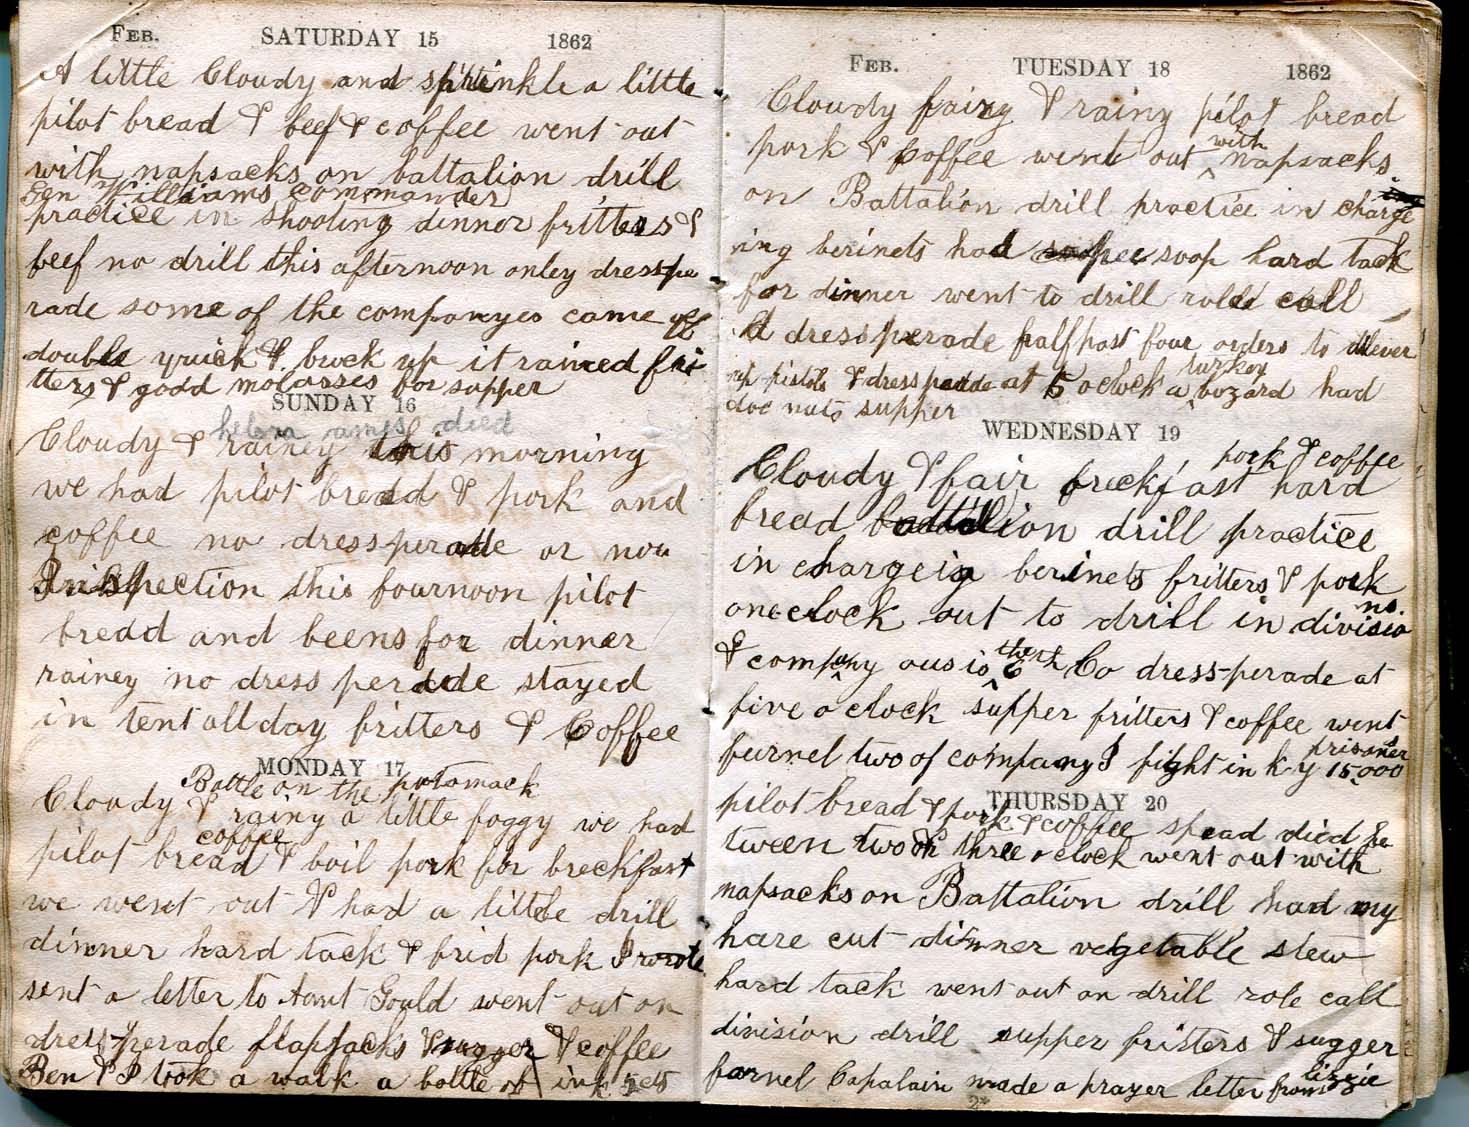 FEB. SATURDAY 15 1862
A little Cloudy and sprinkle a little
pilot bread & beef & coffee went out
with napsacks on battalion drill
Gen Williams Commander
practice in shooting dinnor fritters &
beef no drill this afternoon onley dresspe
rade some of the companyes came off
double quick & brock up it rained fri
tters & godd molasses for supper
SUNDAY 16
helena ames died
Cloudy & rainey this morning
we had pilot bredd & pork and
coffee no dressperade or nou
Inispection this fournoon pilot
bredd and beens for dinner
rainey no dress perade stayed
in tent all day fritters & Coffee
MONDAY 17
Battle on the potomack
Cloudy & rainy a little foggy we had
coffee
pilot bread & boil pork for breckfast
we went out & had a little drill
dinner hard tack & frid pork I wrote
sent a letter to Aunt Gould went out on
dress-perade flapjacks & sugger & coffee
Ben & I took a walk a bottle of ink 5 cts
FEB. TUESDAY 18 1862
Cloudy fairy & rainy pilot bread
pork & Coffee went out with napsacks
on Battalion drill practice in charge
ing berinets had soop hard tack
for dinner went to drill role call
& dressperade half past four orders to dilever
up pistols & dressperade at 5 oclock a turkey bozard had
doe nuts supper
WEDNESDAY 19
pork & coffee
Cloudy & fair breckfast hard
bread battalion drill practice
in chargeig berinets fritters & pork
one clock out to drill in divisio
ns.
& company ous is the 6th Co dress-perade at
five o clock supper fritters & coffee went
prisoners
furnel two of company I fight in k y 15.000
THURSDAY 20
pilot bread & pork & coffee spead died be
tween two or three o clock went out with
napsacks on Battalion drill had my
hare cut dinner vegetable stew
hard tack went out on drill role call
division drill supper fristers & sugger
farnel Capalain made a prayer letter from lizzie